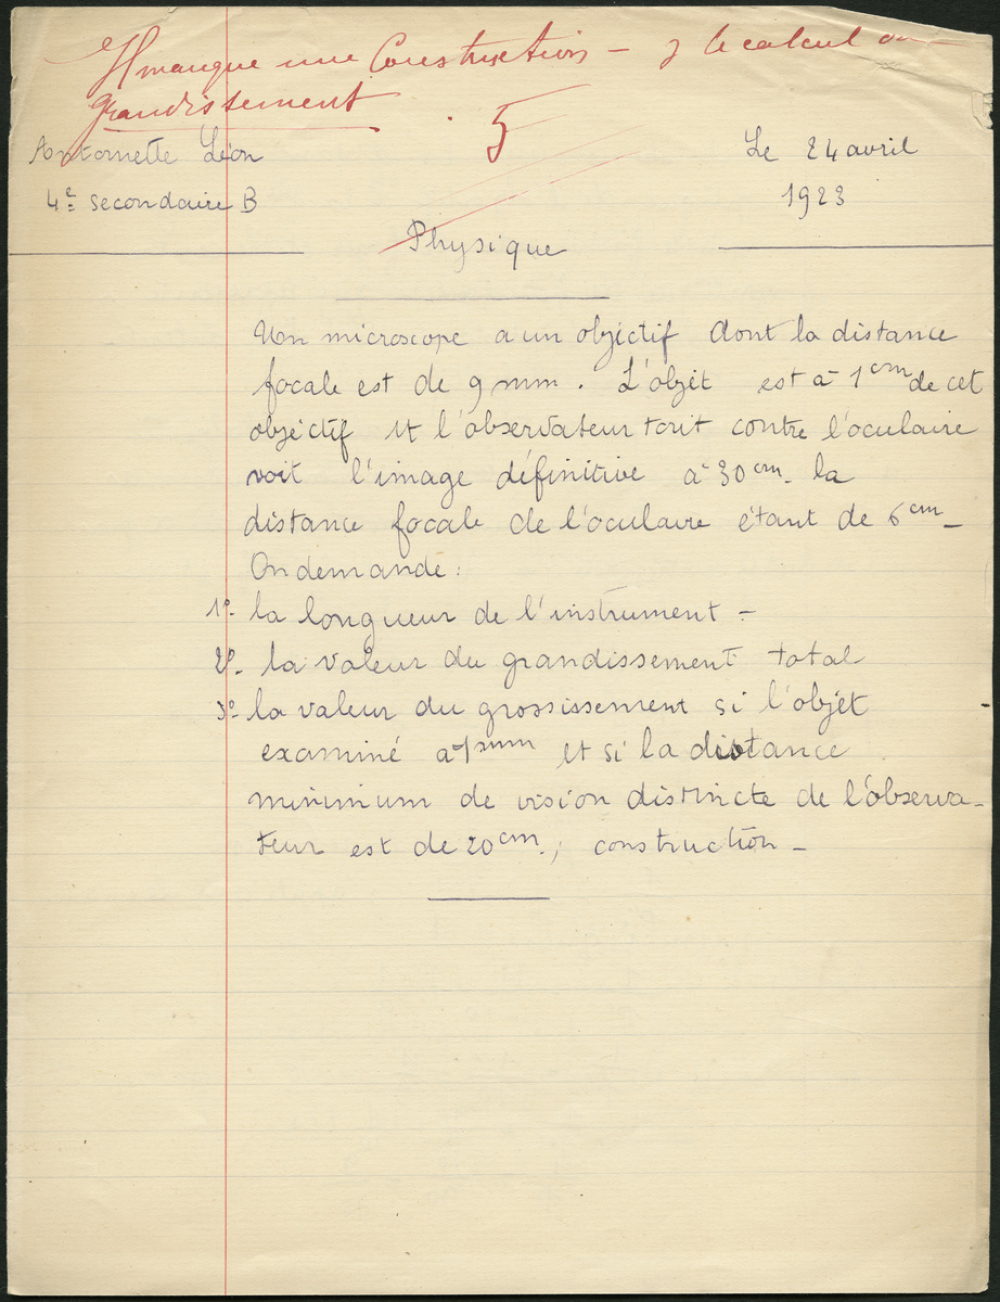 Il manque une Construction – & le calcul du
grandissement
5
Antoinette Léon
Le 24 avril
4e secondaire B
1923
Physique
Un microscope a un objectif dont la distance
focale est de 9 mm. L'objet est à 1 cm de cet
objectif et l'observateur tout contre l'oculaire
voit l'image définitive à 30 cm. la
distance focale de l'oculaire étant de 6 cm –
On demande :
1º- la longueur de l'instrument –
2º- la valeur du grandissement total
3º- la valeur du grossissement si l'objet
examiné a et si la distance
minimum de vision distincte de l'observa-
teur est de 20 cm., construction –